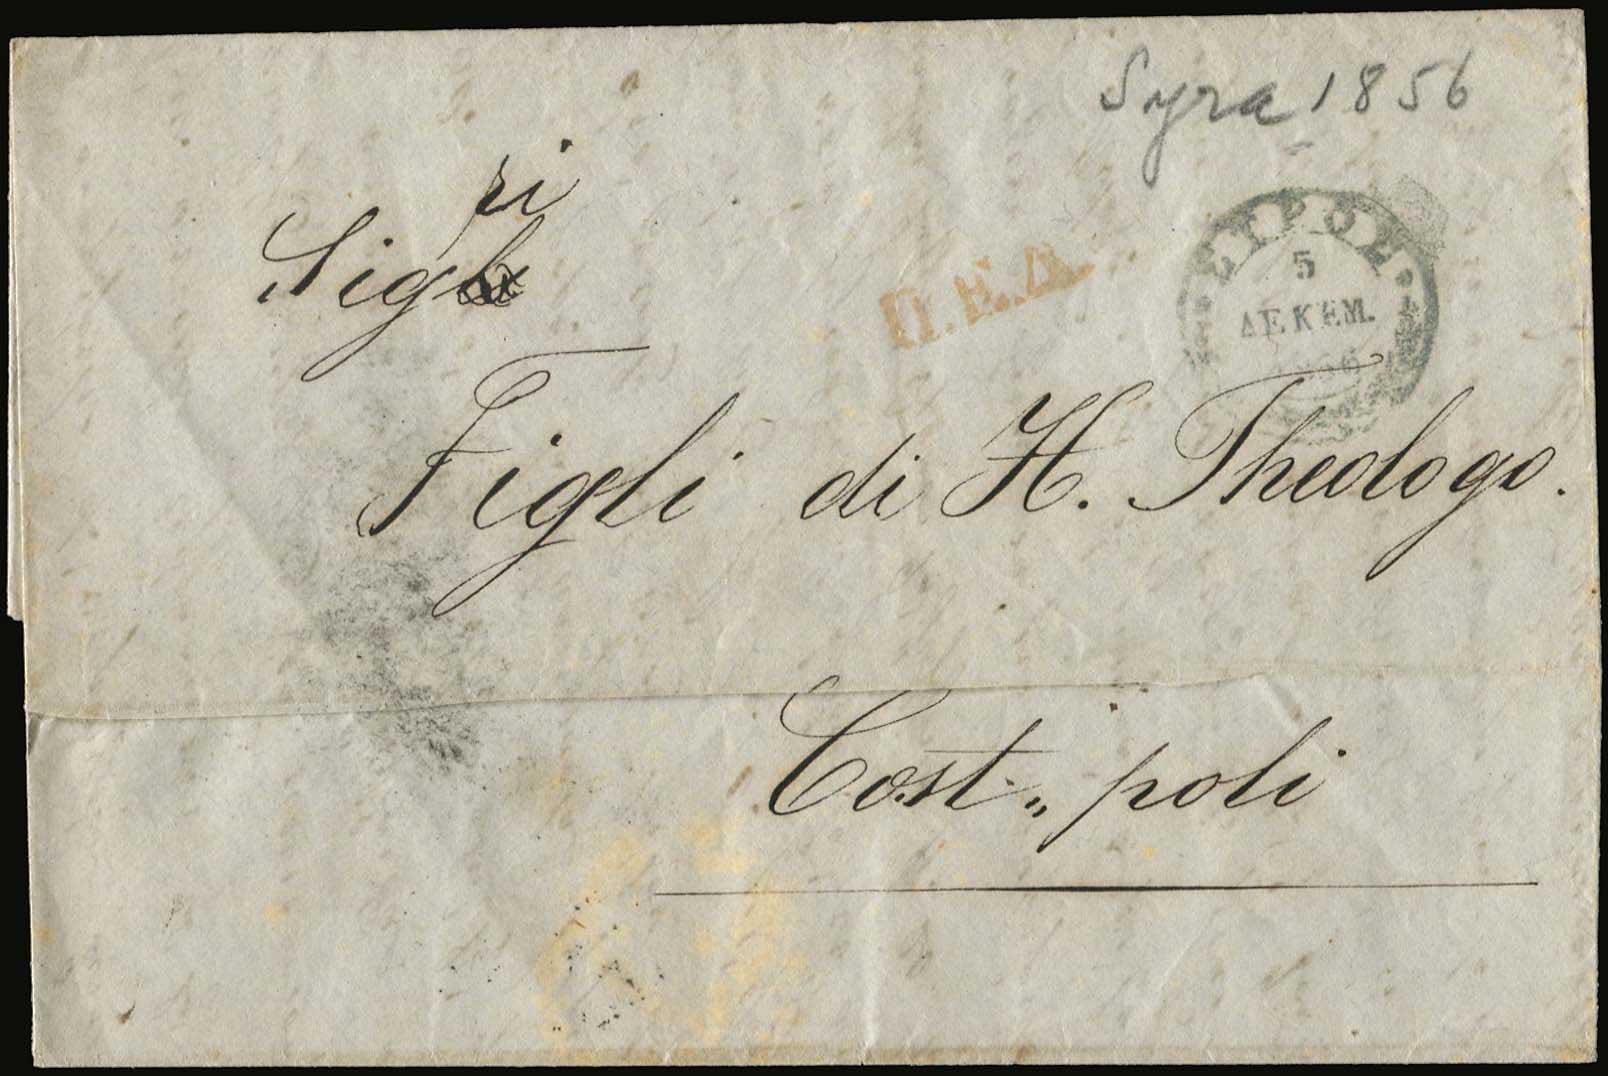 Syra 1856
Sigri
Π.Ε.Δ.
5
ΔΕΚΕΜ.
Figli di H. Theologo.
Cost„ poli